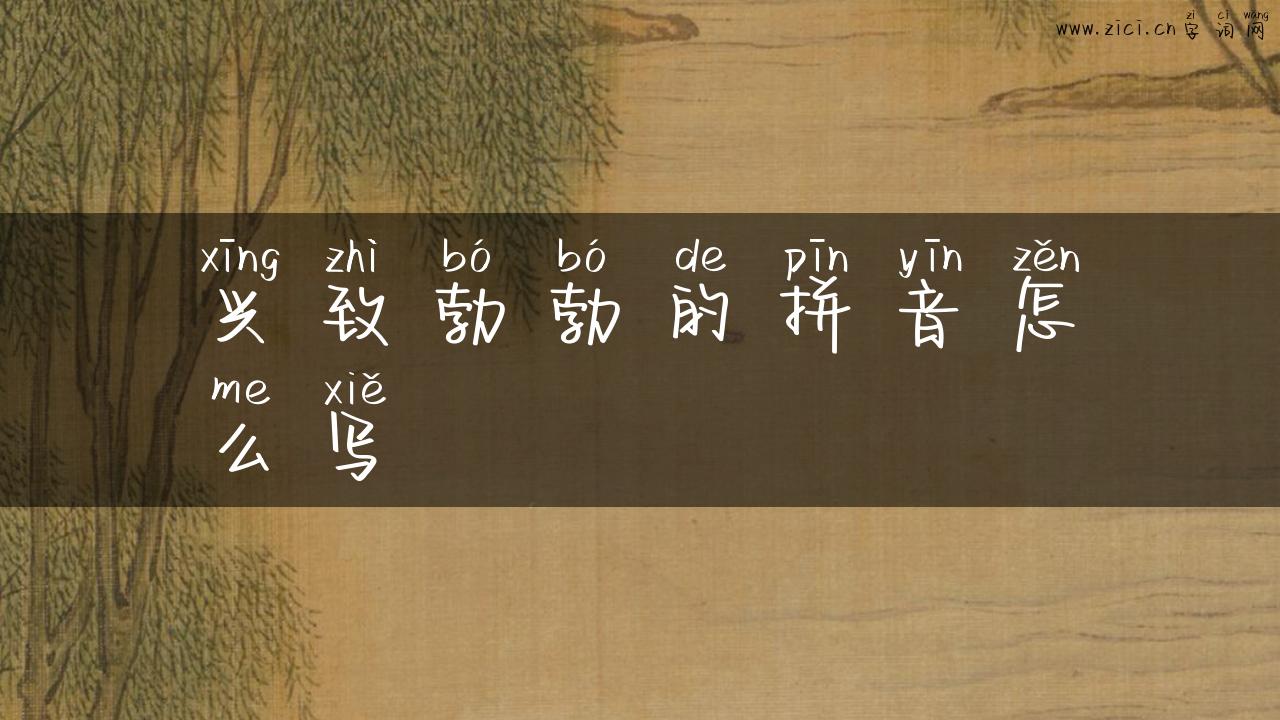 zì cí wǎng
www.zici.cn 字 词 网
xīng zhì bó bó de pīn yīn zěn
兴 致 勃 勃 的 拼 音 怎
me xiě
么 写